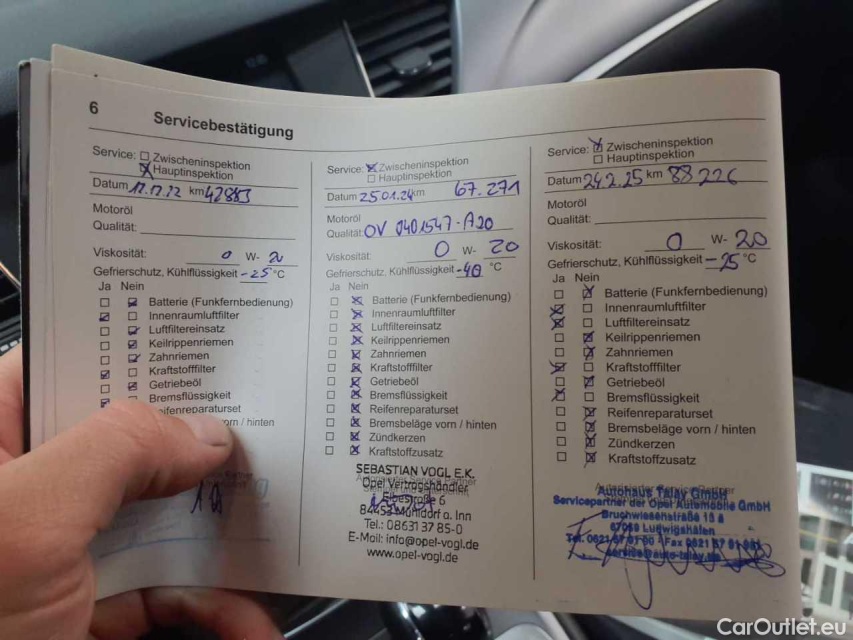 6
Servicebestätigung
Service: Zwischeninspektion
Hauptinspektion
Datum km 42883
Motoröl
Qualität:
Viskosität: 0 W- 20
Gefrierschutz, Kühlflüssigkeit -25 °C
Ja Nein
Batterie (Funkfernbedienung)
Innenraumluftfilter
Luftfiltereinsatz
Keilrippenriemen
Zahnriemen
Kraftstofffilter
Getriebeöl
Bremsflüssigkeit
Reifenreparaturset
vorn / hinten
Service: Zwischeninspektion
Hauptinspektion
Datum 25.01.24 km 67.271
Motoröl
Qualität: OV 0401547-A20
Viskosität: 0 W- 20
Gefrierschutz, Kühlflüssigkeit -40 °C
Ja Nein
Batterie (Funkfernbedienung)
Innenraumluftfilter
Luftfiltereinsatz
Keilrippenriemen
Zahnriemen
Kraftstofffilter
Getriebeöl
Bremsflüssigkeit
Reifenreparaturset
Bremsbeläge vorn / hinten
Zündkerzen
Kraftstoffzusatz
SEBASTIAN VOGL E.K.
Opel Vertragshändler
Elbestraße 6
84453 Mühldorf a. Inn
Tel.: 08631 37 85-0
E-Mail: info@opel-vogl.de
www.opel-vogl.de
Service: Zwischeninspektion
Hauptinspektion
Datum 24.2.25 km 88 226
Motoröl
Qualität:
Viskosität: 0 W- 20
Gefrierschutz, Kühlflüssigkeit -25 °C
Ja Nein
Batterie (Funkfernbedienung)
Innenraumluftfilter
Luftfiltereinsatz
Keilrippenriemen
Zahnriemen
Kraftstofffilter
Getriebeöl
Bremsflüssigkeit
Reifenreparaturset
Bremsbeläge vorn / hinten
Zündkerzen
Kraftstoffzusatz
Autohaus Talay GmbH
Servicepartner der Opel Automobile GmbH
Bruchwiesenstraße
67059 Ludwigshafen
CarOutlet.eu